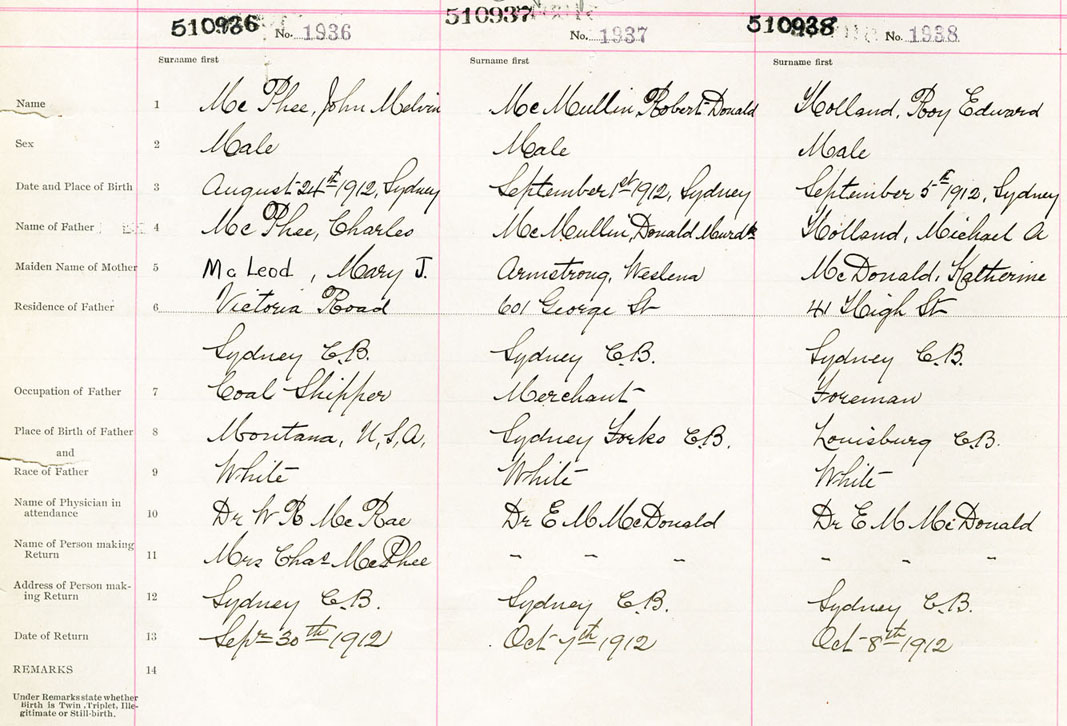 510936 No. 1936 510937 No. 1937 510938 No. 1938
Surname first Surname first Surname first
Name 1 Mc Phee, John Melvin Mc Mullin, Robert Donald Holland, Roy Edward
Sex 2 Male Male Male
Date and Place of Birth 3 August 24th 1912, Sydney September 1st 1912, Sydney September 5th 1912, Sydney
Name of Father 4 Mc Phee, Charles Mc Mullin, Donald Murdk Holland, Michael A
Maiden Name of Mother 5 Mc Leod, Mary J. Armstrong, Weslena McDonald, Katherine
Residence of Father 6 Victoria Road 601 George St 41 High St
Sydney C.B. Sydney C.B. Sydney C.B.
Occupation of Father 7 Coal Shipper Merchant Foreman
Place of Birth of Father 8 Montana, U.S.A. Sydney Forks C.B. Louisburg C.B.
and
Race of Father 9 White White White
Name of Physician in
attendance 10 Dr W R Mc Rae Dr E M McDonald Dr E M McDonald
Name of Person making
Return 11 Mrs Chas McPhee " " " " " "
Address of Person mak-
ing Return 12 Sydney C.B. Sydney C.B. Sydney C.B.
Date of Return 13 Sepr 30th 1912 Oct 7th 1912 Oct 8th 1912
REMARKS 14
Under Remarks state whether
Birth is Twin, Triplet, Ille-
gitimate or Still-birth.